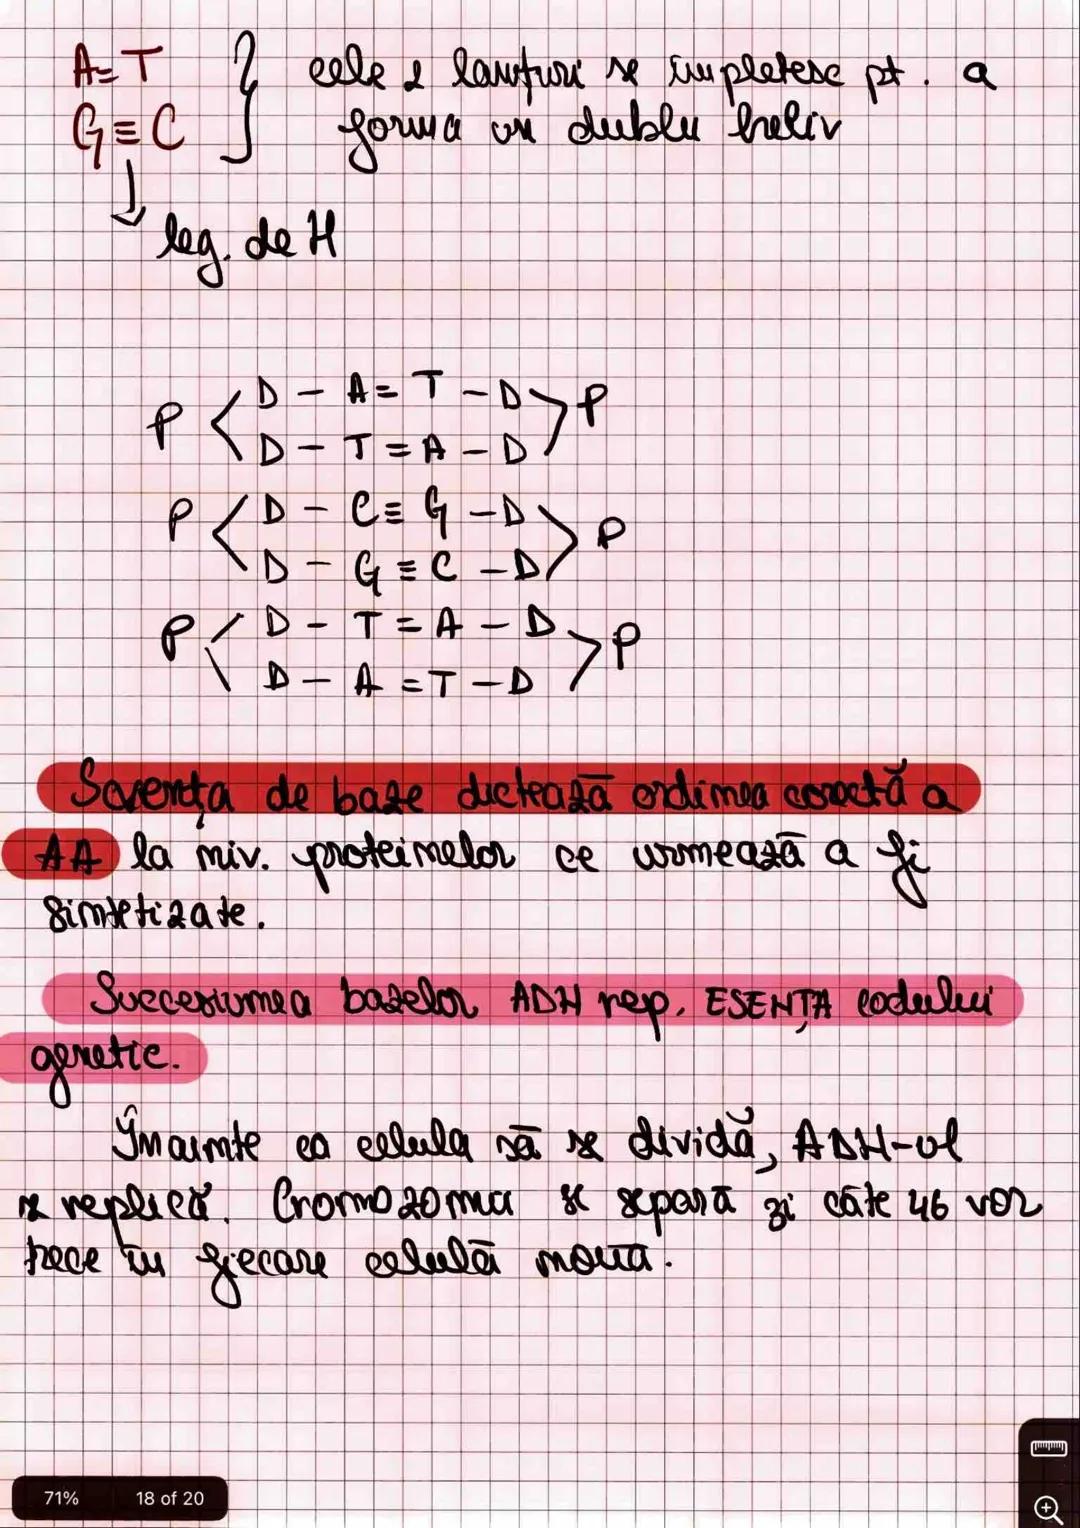 A=T } cele 2 lanțuri se împletesc pt. a
G≡C forma un dublu helix
leg. de H
P < D - A = T - D > P
D - T = A - D
P < D - C ≡ G - D > P
D - G ≡ C - D
P < D - T = A - D > P
D - A = T - D
de baze dictează ordinea corectă a
AA la niv. proteinelor ce urmează a fi
sintetizate.
Succesiunea bazelor ADN rep. ESENȚA codului
genetic.
Înainte ca celula să se dividă, ADN-ul
se replică. Cromozomii se separă și câte 46 vor
trece în fiecare celulă nouă.
71% 18 of 20